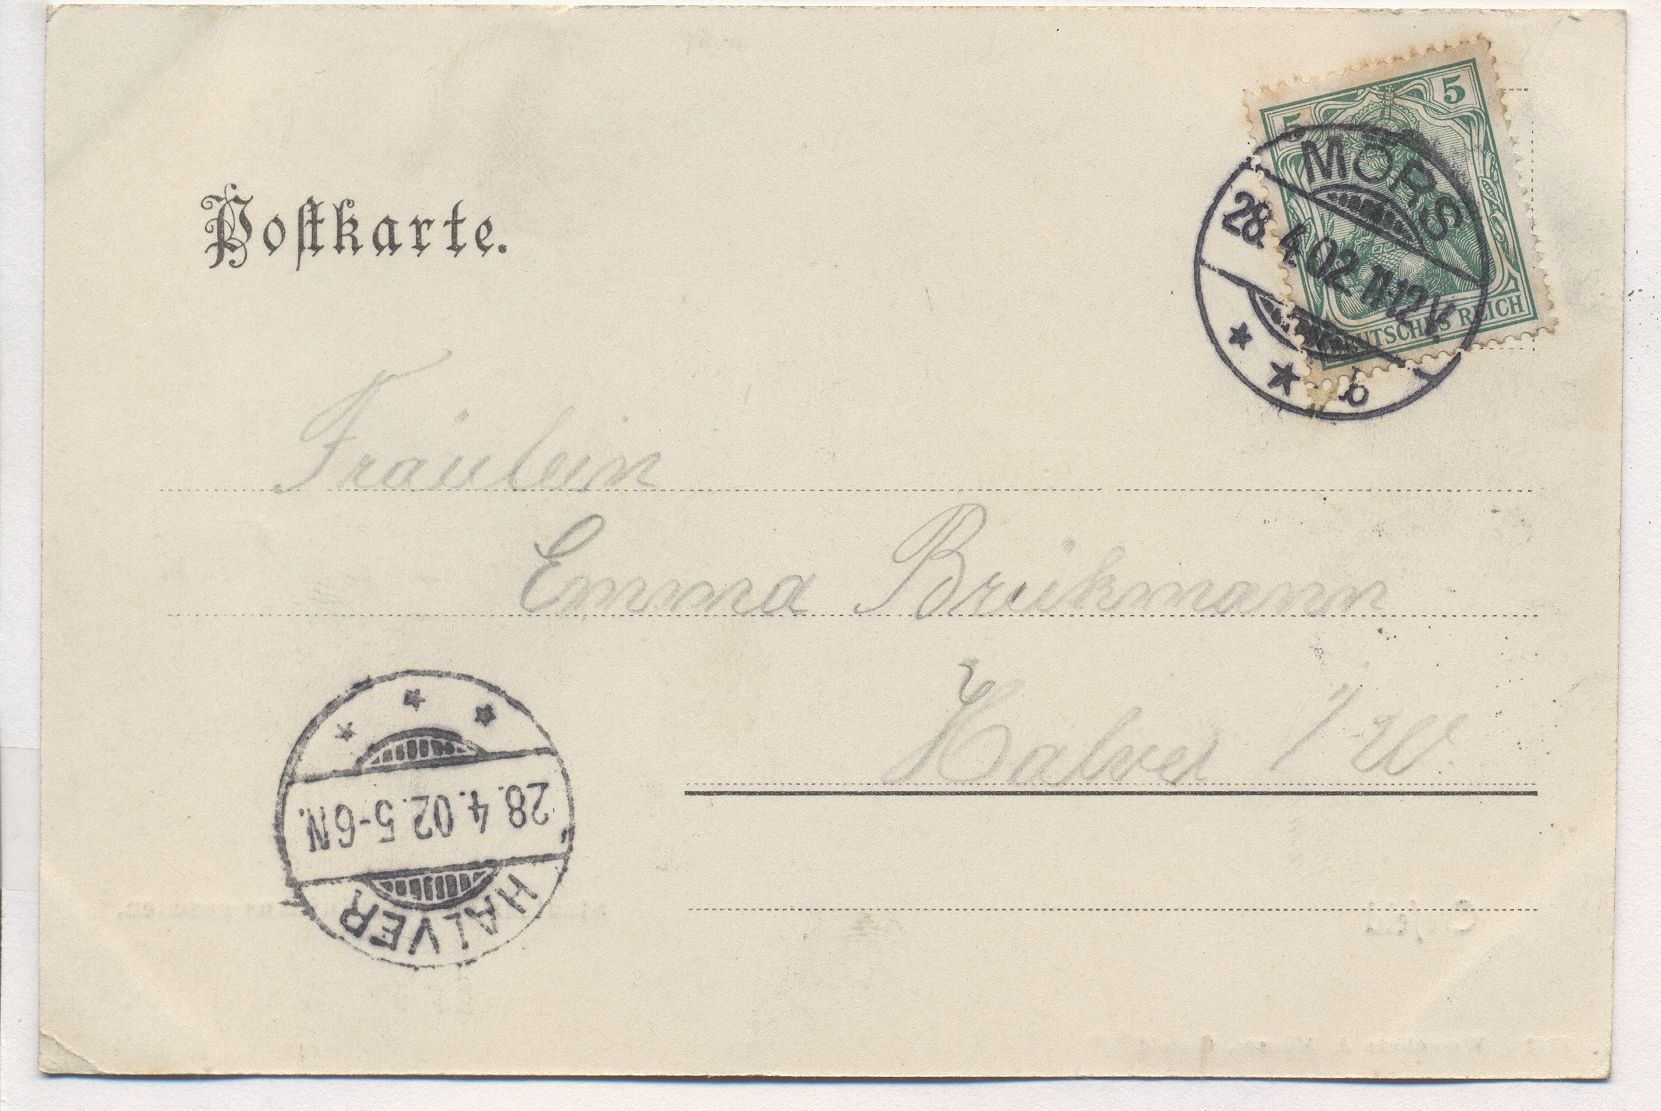 5 5
DEUTSCHES REICH
MÖRS
28.4.02.11-12V.
b
Postkarte.
Fräulein
Emma Brükmann
Halver i/W.
28.4.02.5-6N.
HALVER